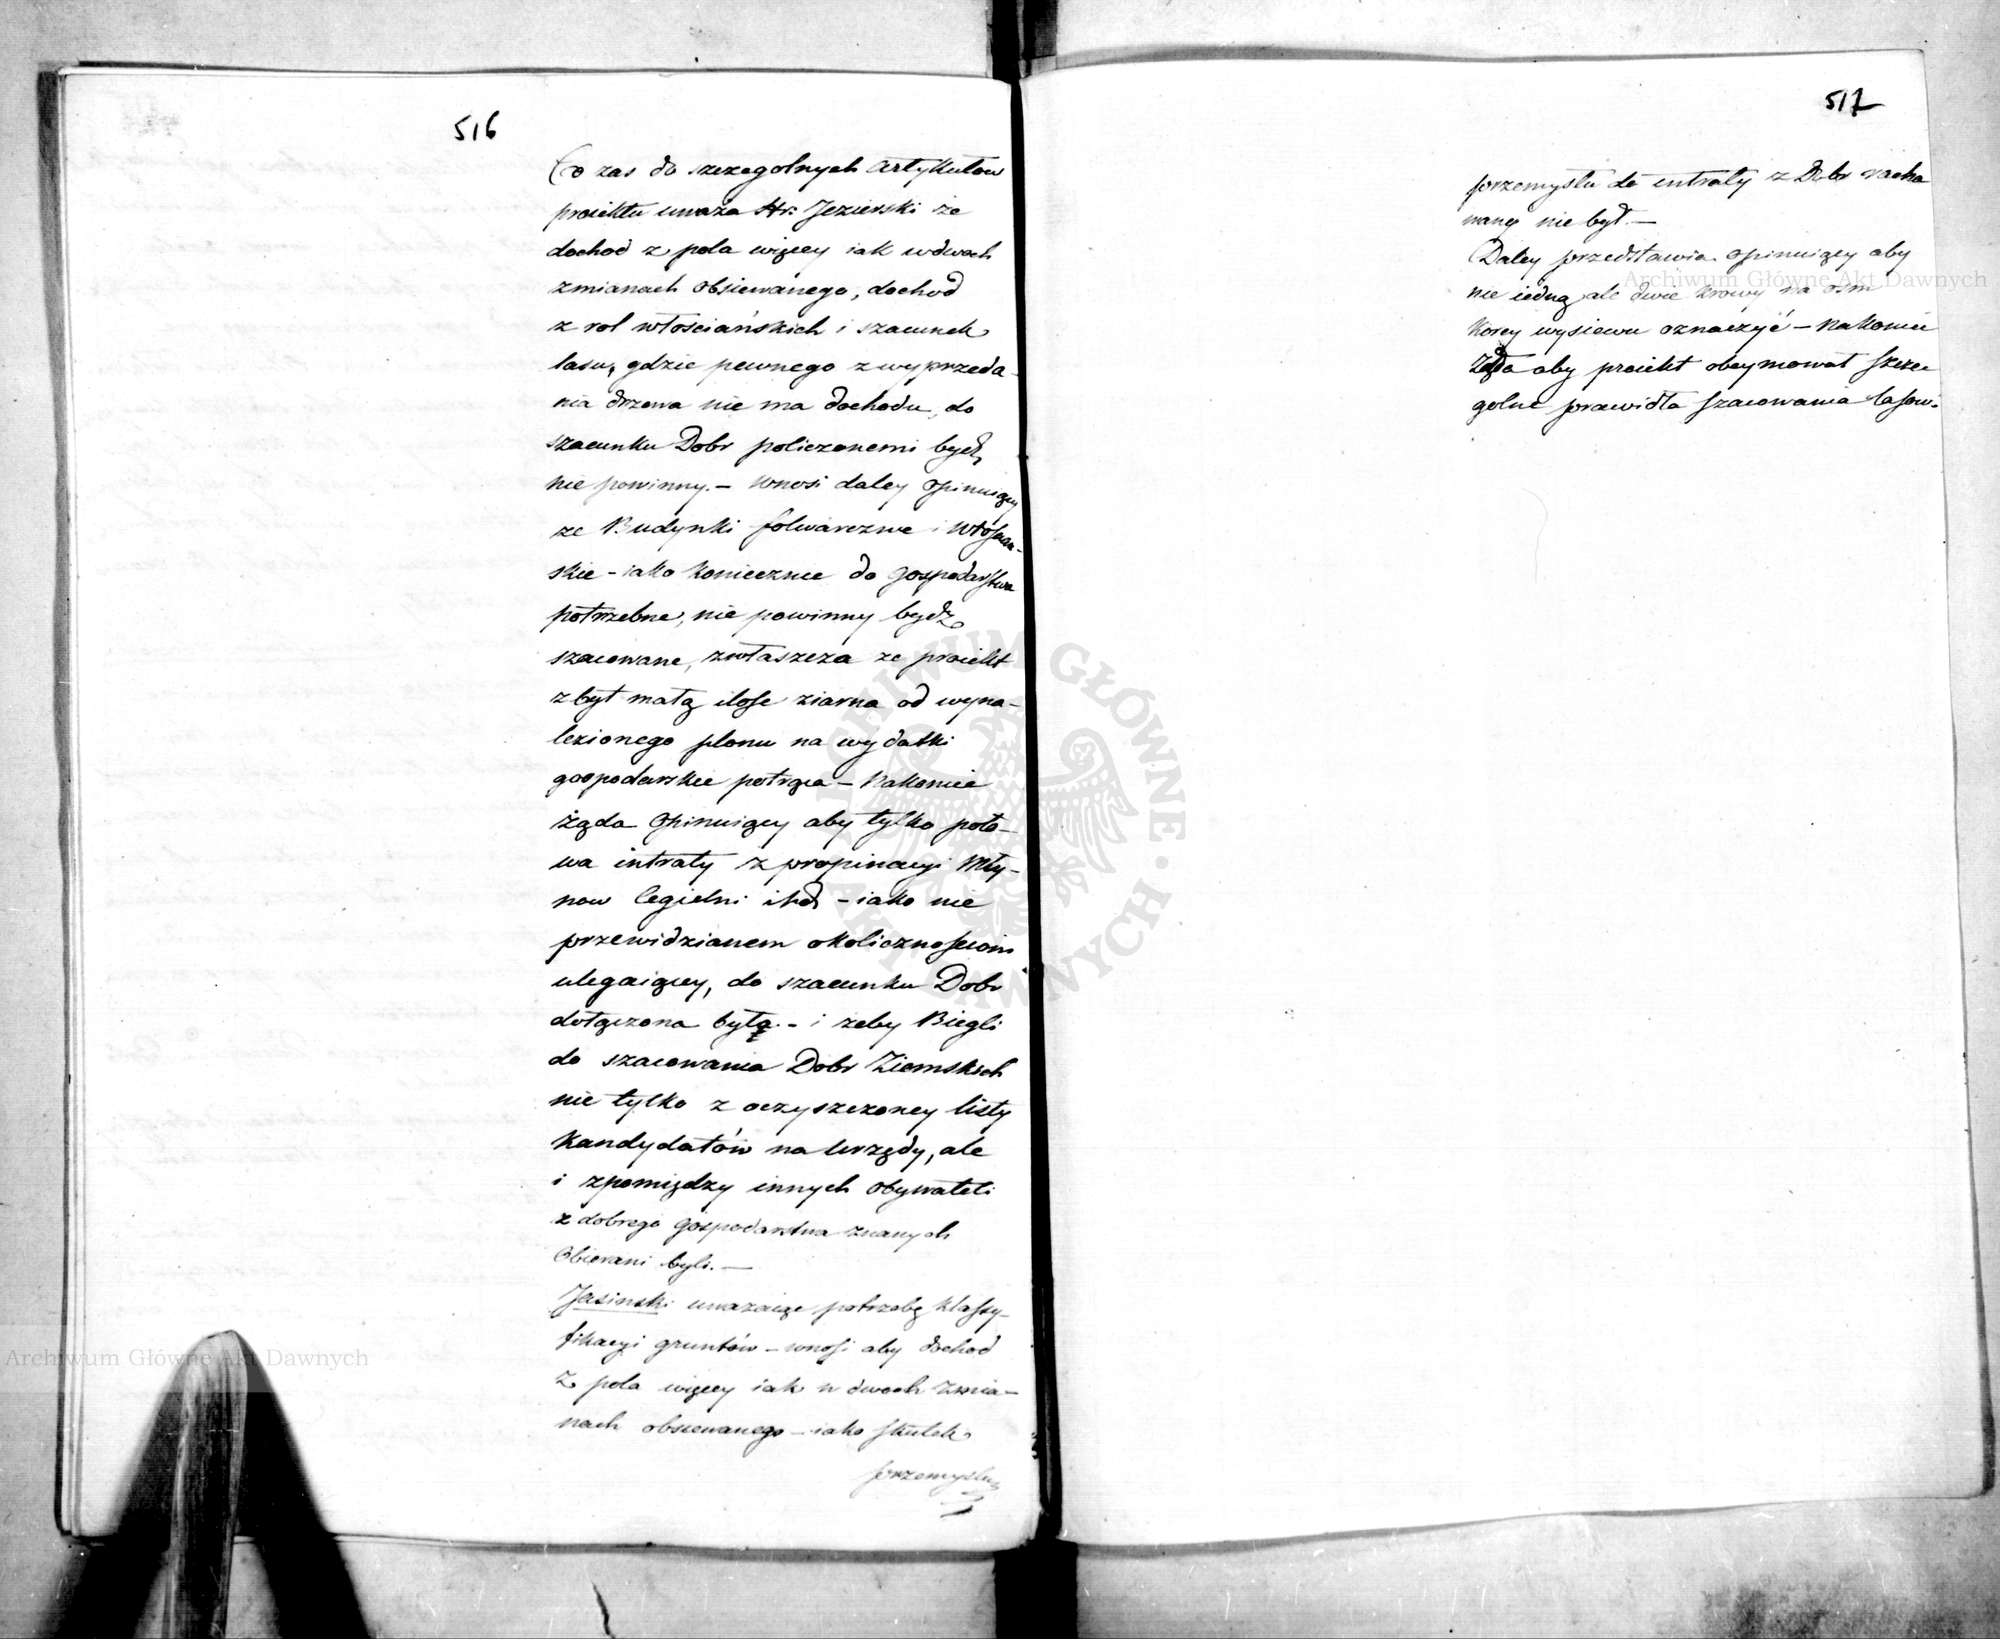 516
Co zas do szczegolnych Artykułow
proiektu uważa Hr: Jezierski że
dochod z pola więcey iak wdwoch
zmianach obsiewanego, dochod
z rol włościańskich i szacunek
lasu, gdzie pewnego z wyprzeda-
nia drzewa nie ma dochodu, do
szacunku Dobr policzonemi bydź
nie powinny. - Wnosi daley Opiniuiący
ze Budynki folwarczne i Włościan-
skie - iako koniecznie do gospodarstwa
potrzebne, nie powinny bydź
szacowane, zwłaszcza ze proiekt
zbyt małą ilosc ziarna od wyna-
lezionego plonu na wydatki
gospodarskie potrąca - Nakoniec
żąda Opiniuiący aby tylko poło-
wa intraty z propinacyi Mły-
now Cegielni itd - iako nie
przewidzianem okolicznosciom
ulegaiącey, do szacunku Dobr
dołączona była. - i zeby Biegli
do szacowania Dobr Ziemskich
nie tylko z oczyszczoney listy
Kandydatów na Urzędy, ale
i zpomiędzy innych Obywateli
z dobrego gospodarstwa znanych
Obierani byli. -
Jasinski uwazaiąc potrzebę klassy-
fikacyi gruntów - wnosi aby dochod
z pola więcey iak w dwoch zmia-
nach obsiewanego - iako skutek
przemysłu
517
przemysłu do intraty z Dobr racho
wany nie był. -
Daley przedstawia Opiniuiący aby
nie iedną ale dwie krowy na osm
korcy wysiewu oznaczyć - Nakoniec
żąda aby proiekt obeymował szcze-
golne prawidła szacowania lasow.
Archiwum Główne Akt Dawnych
Archiwum Główne Akt Dawnych
ARCHIWUM GŁÓWNE AKT DAWNYCH